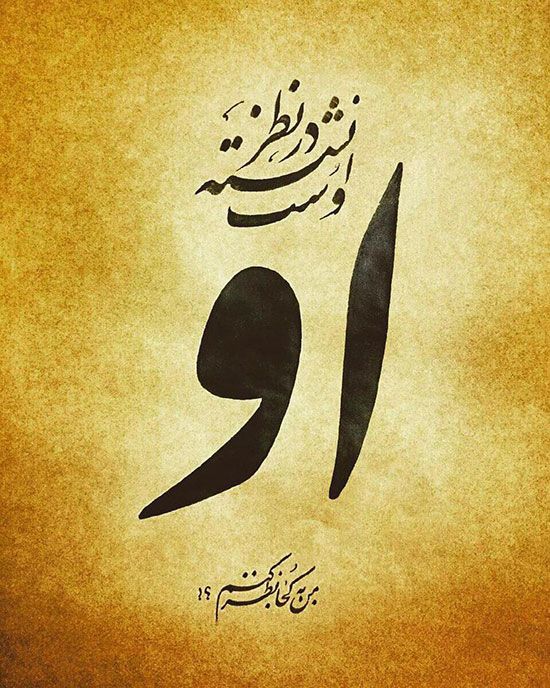 اوست نشسته در نظر،
او
من به کجا نظر کنم؟!